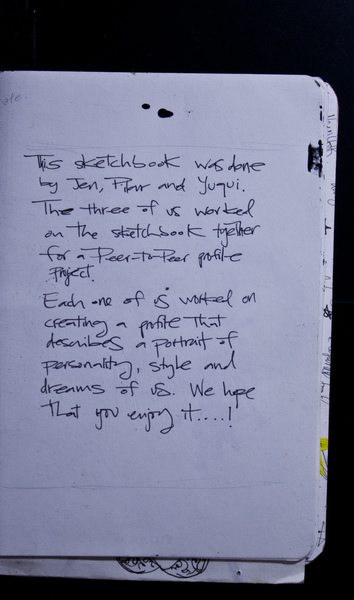 This sketchbook was done
by Jen, and Yuqui.
The three of us worked
on the sketchbook together
for a Peer-to-Peer profile
project.
Each one of us worked on
creating a profile that
describes a portrait of
personality, style and
dreams of us. We hope
that you enjoy it....!